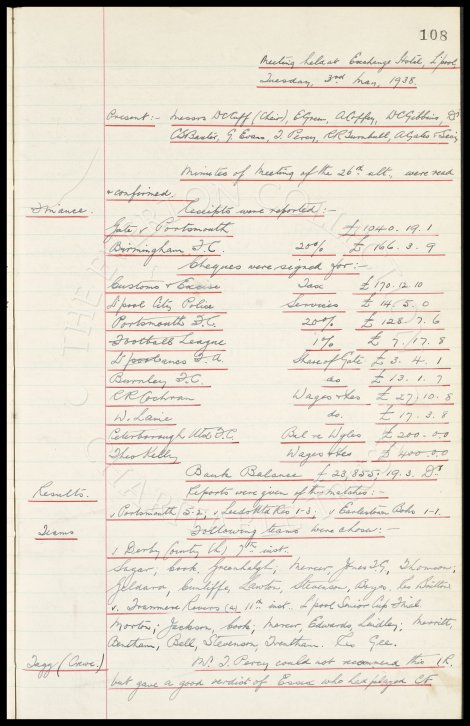 108
Meeting held at Exchange Hotel, L'pool,
Tuesday, 3rd May, 1938.
Present:- Messrs D Cuff (Chair), E Green, A Coffey, D C Gibbins, Dr
C S Baxter, G. Evans, T. Percy, R R Turnbull, A Gates & Secy
Minutes of Meeting of the 26th ult. were read
& confirmed.
Finance. Receipts were reported:-
Gate v Portsmouth £1040.19.1
Birmingham F.C. 20% £166.3.9
Cheques were signed for:-
Customs & Excise Tax £170.12.10
L'pool City Police Services £14.5.0
Portsmouth F.C. 20% £128.7.6
Football League 1% £7.17.8
Lancs F.A. Share of Gate £3.4.1
Burnley F.C. do £13.1.7
R R Cochran Wages & Exes £27.10.8
do. £17.3.8
Peterborough Utd F.C. Bal re £200.0.0
Theo Kelly Wages & Exes £400.0.0
Bank Balance £23,855.19.3. Dr
Results. Reports were given of this matches:-
v Portsmouth 5-2; v Leeds Utd Res 1-3; v Earlestown Boho 1-1.
Teams Following teams were chosen:-
v Derby County (h) 7th inst.
Sagar; Cook, Greenhalgh; Mercer, Jones T G, Thomson;
Geldard, Cunliffe, Lawton, Stevenson, Boyes. Res Britton
v. Tranmere Rovers (a) 11th inst. L'pool Senior Cup Final
Morton; Jackson, Cook; Mercer, Edwards, Lindley; Merritt,
Bentham, Bell, Stevenson, Trentham. Res Gee.
Jagg (Crewe.) Mr. T. Percy could not recommend this I.R.
but gave a good verdict of Essex who had played CF